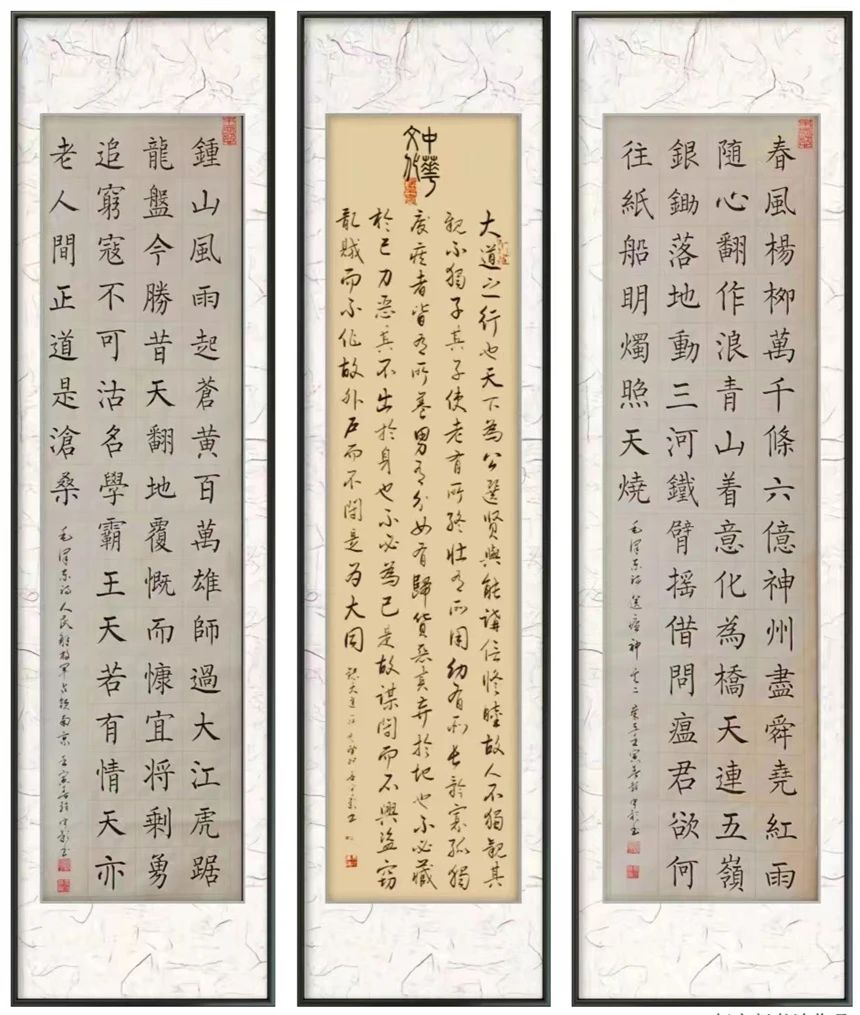 春風楊栁萬千條六億神州盡舜堯紅雨
隨心翻作浪青山着意化為橋天連五嶺
銀鋤落地動三河鐵臂摇借問瘟君欲何
往紙船明燭照天燒
毛澤东詩送瘟神 其二 壬寅春
中華
文化
大道之行也天下為公選贤與能講信修睦故人不獨親其
親不獨子其子使老有所終壮有所用幼有所長矜寡孤獨
廢疾者皆有所養男有分女有歸货惡其弃於地也不必藏
於己力惡其不出於身也不必為己是故謀閉而不興盗窃
亂賊而不作故外户而不閉是为大同
鍾山風雨起蒼黄百萬雄師過大江虎踞
龍盤今勝昔天翻地覆慨而慷宜将剩勇
追窮寇不可沽名學霸王天若有情天亦
老人間正道是滄桑
毛澤东詩人民解放軍占領南京 壬寅春